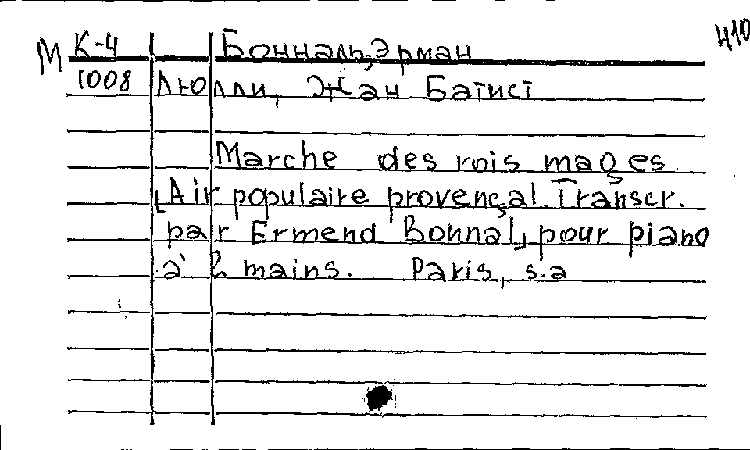 410
М К-4 Бонналь, Эрман
1008 Люлли, Жан Батист
Marche des rois mages
[Air populaire provençal. Transcr.
par Ermend Bonnal], pour piano
à 2 mains. Paris, s.a